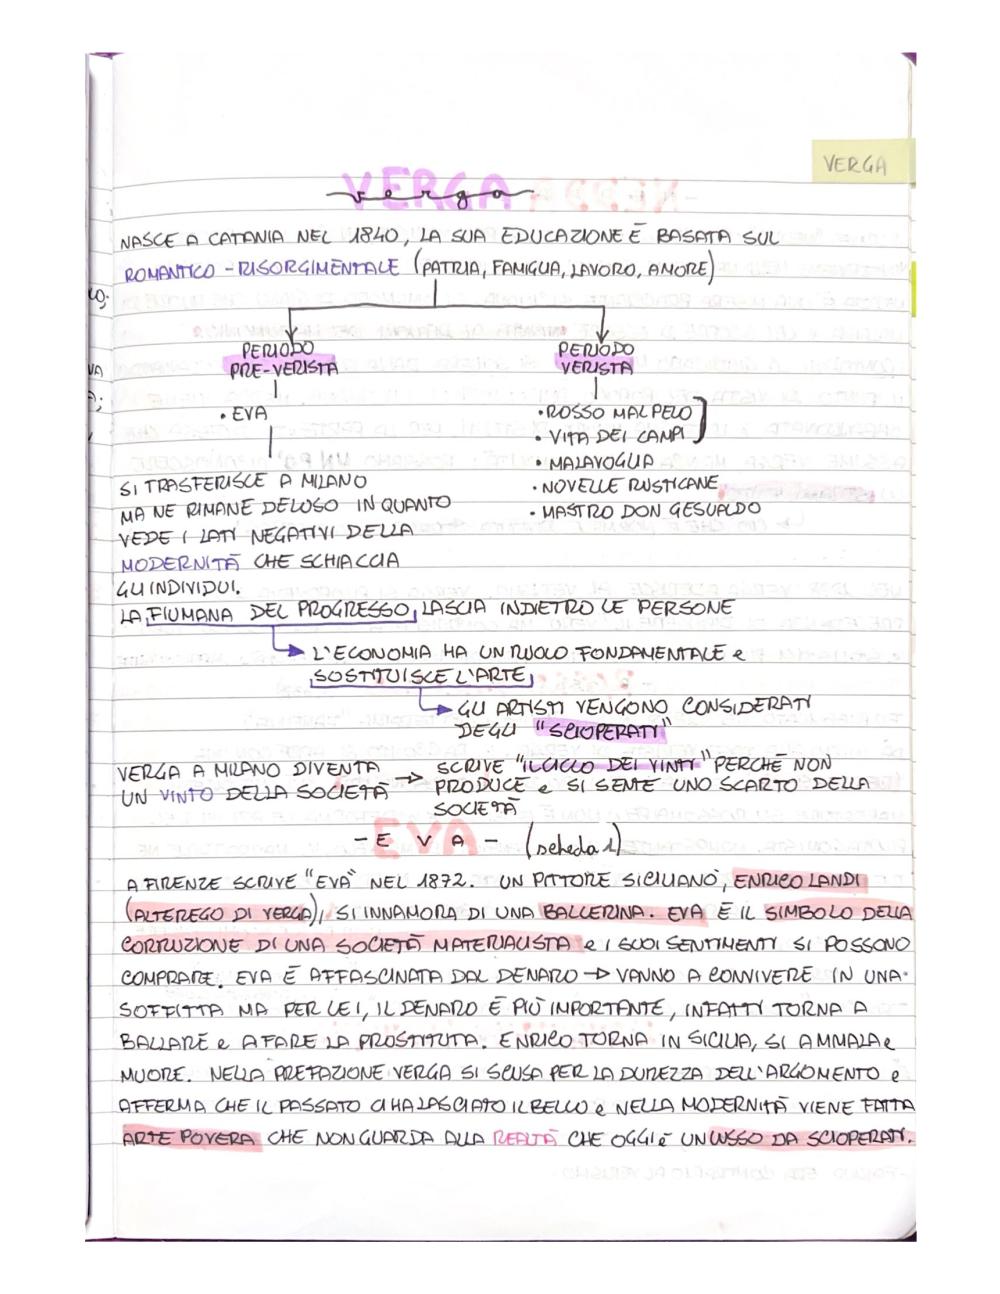 VERGA
VERGA
verga
NASCE A CATANIA NEL 1840, LA SUA EDUCAZIONE È BASATA SUL
ROMANTICO-RISORGIMENTALE (PATRIA, FAMIGLIA, LAVORO, AMORE)
PERIODO
PRE-VERISTA
PERIODO
VERISTA
• EVA
• ROSSO MALPELO
• VITA DEI CAMPI
• MALAVOGLIA
• NOVELLE RUSTICANE
• MASTRO DON GESUALDO
SI TRASFERISCE A MILANO
MA NE RIMANE DELUSO IN QUANTO
VEDE I LATI NEGATIVI DELLA
MODERNITÀ CHE SCHIACCIA
GLI INDIVIDUI.
LA FIUMANA DEL PROGRESSO, LASCIA INDIETRO LE PERSONE
L'ECONOMIA HA UN RUOLO FONDAMENTALE e
SOSTITUISCE L'ARTE
GLI ARTISTI VENGONO CONSIDERATI
DEGLI "SCIOPERATI"
VERGA A MILANO DIVENTA
UN VINTO DELLA SOCIETÀ
→ SCRIVE "IL CICLO DEI VINTI" PERCHÈ NON
PRODUCE e SI SENTE UNO SCARTO DELLA
SOCIETÀ
- E V A - (scheda 1)
A FIRENZE SCRIVE "EVA" NEL 1872. UN PITTORE SICILIANO, ENRICO LANDI
(ALTEREGO DI VERGA), SI INNAMORA DI UNA BALLERINA. EVA È IL SIMBOLO DELLA
CORRUZIONE DI UNA SOCIETÀ MATERIALISTA e I SUOI SENTIMENTI SI POSSONO
COMPRARE. EVA È AFFASCINATA DAL DENARO → VANNO A CONVIVERE IN UNA
SOFFITTA MA PER LEI, IL DENARO È PIÙ IMPORTANTE, INFATTI TORNA A
BALLARE e A FARE LA PROSTITUTA. ENRICO TORNA IN SICILIA, SI AMMALA e
MUORE. NELLA PREFAZIONE VERGA SI SCUSA PER LA DUREZZA DELL'ARGOMENTO e
AFFERMA CHE IL PASSATO CI HA LASCIATO IL BELLO e NELLA MODERNITÀ VIENE FATTA
ARTE POVERA CHE NON GUARDA ALLA REALTÀ CHE OGGI È UN LUSSO DA SCIOPERATI.